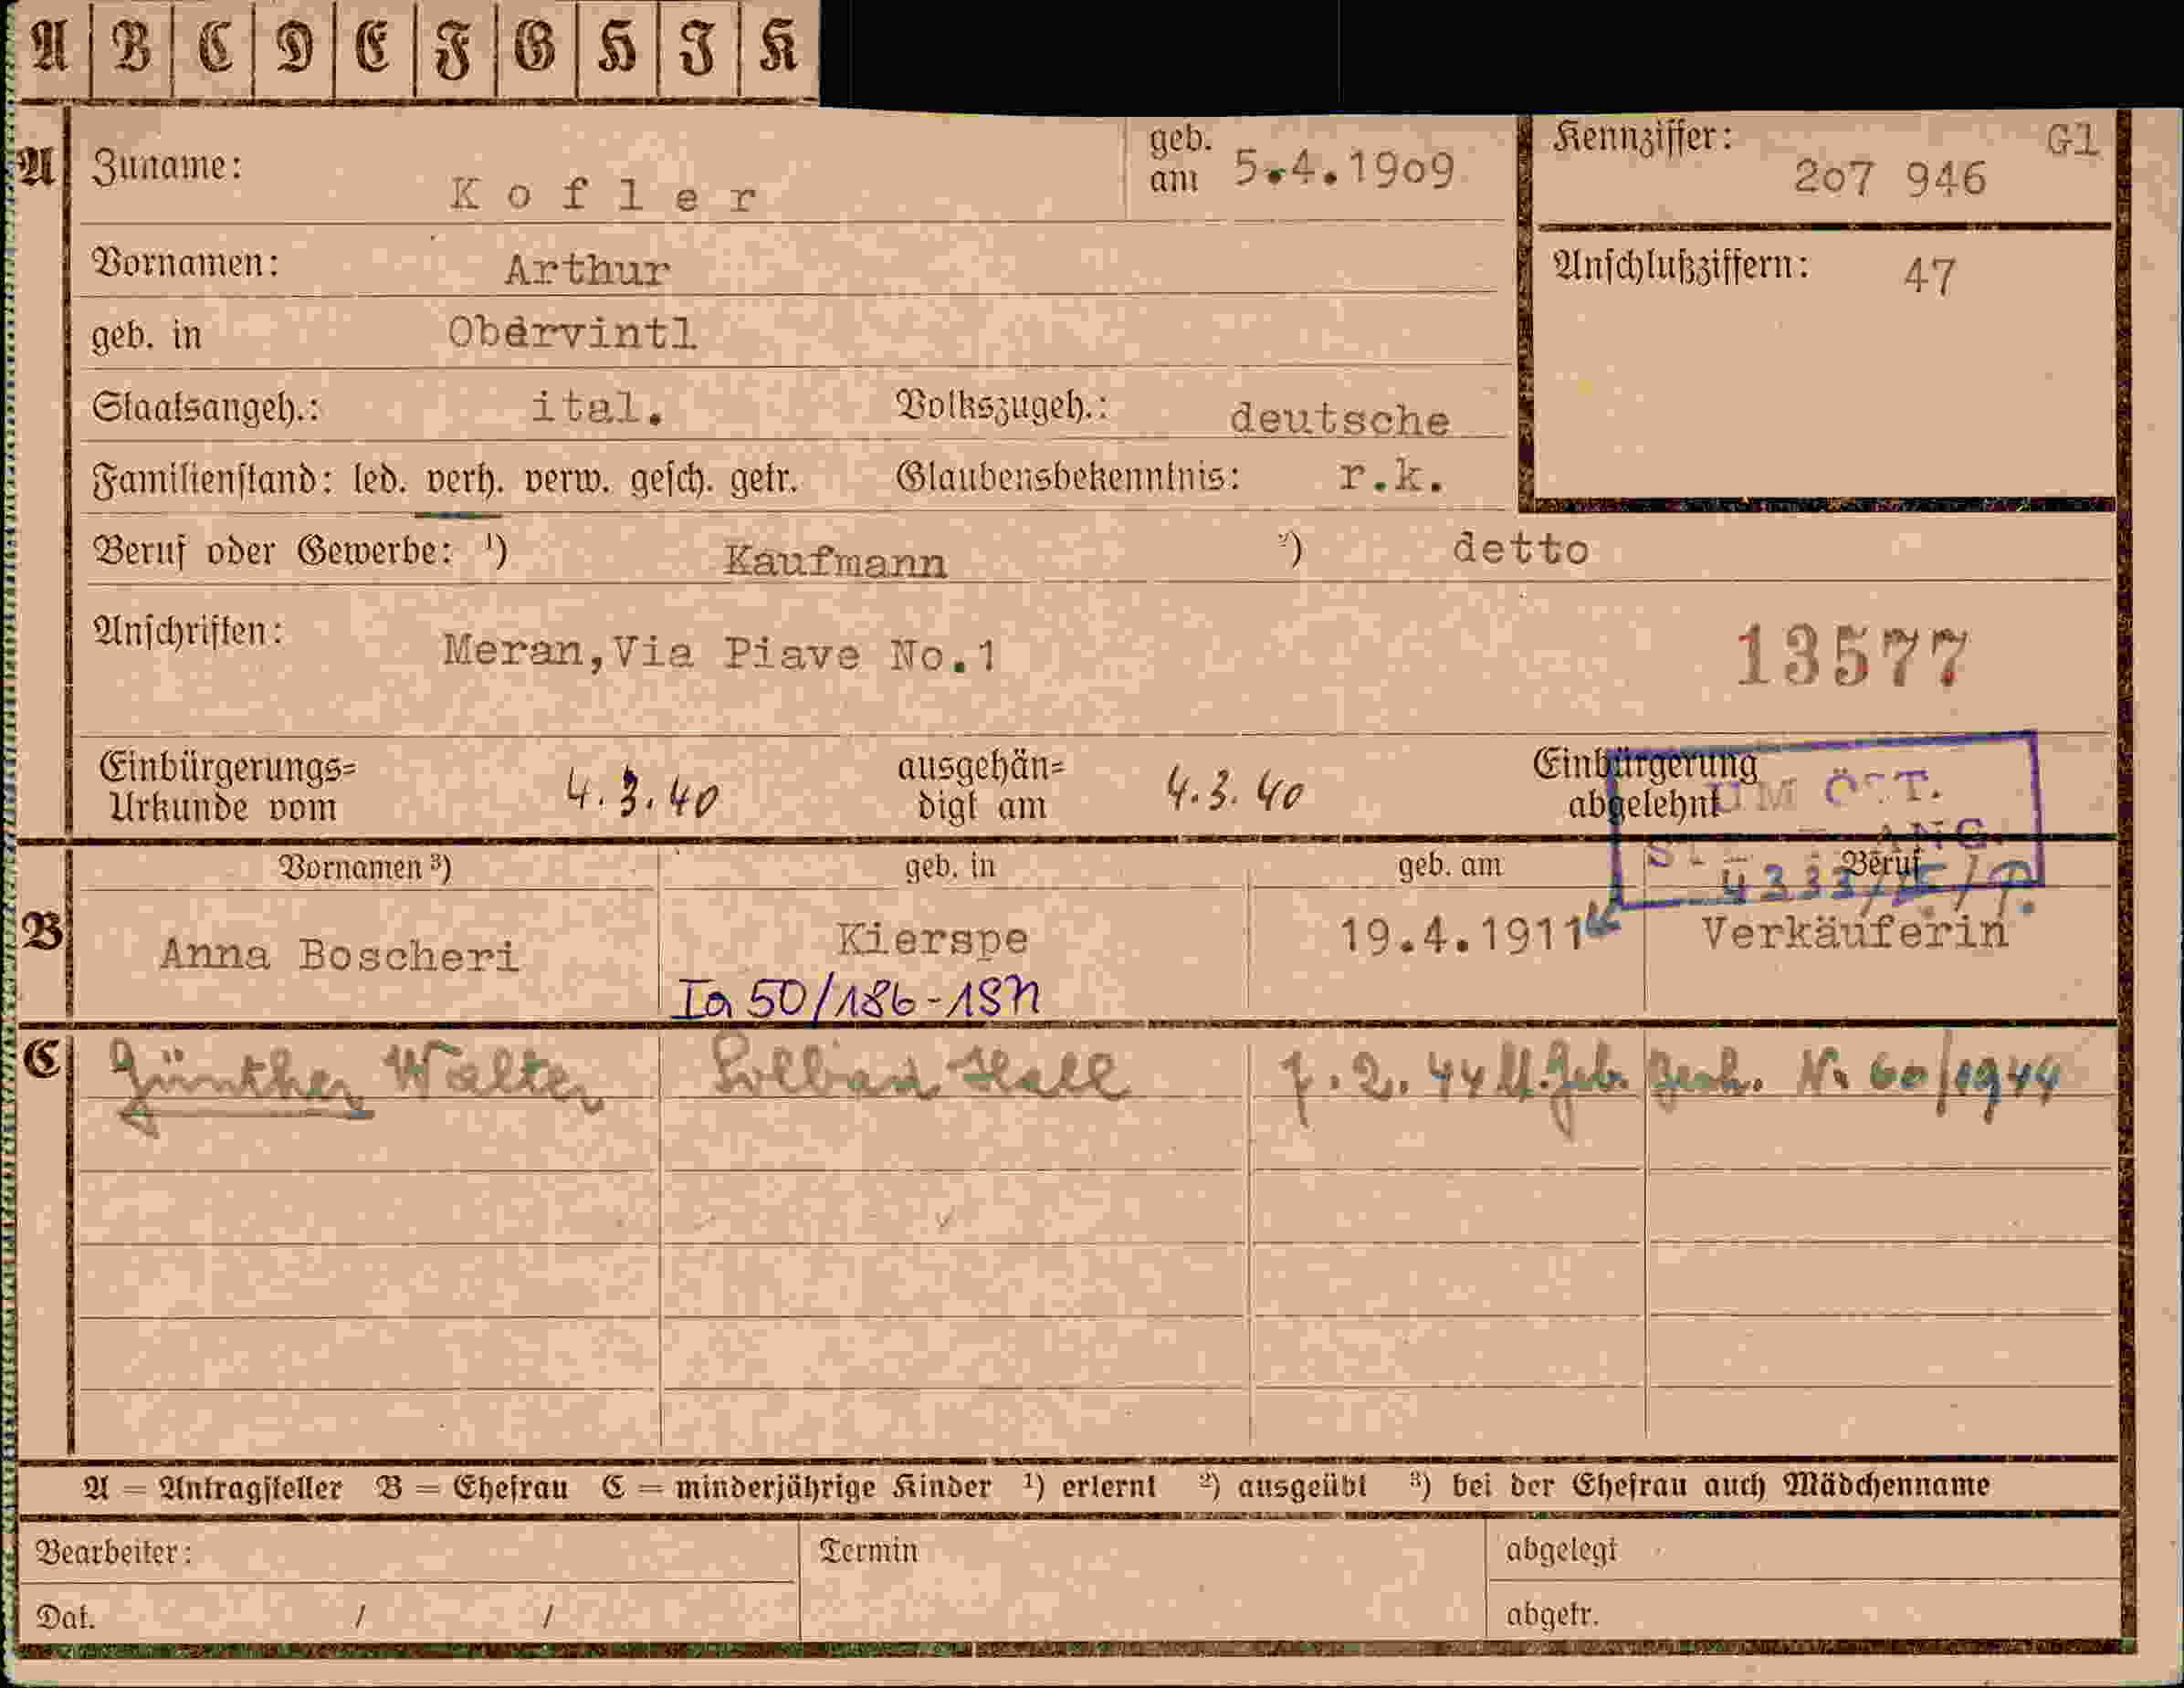 A B C D E F G H I K
A Zuname: Kofler geb. am 5.4.1909 Kennziffer: 207 946 Gl
Vornamen: Arthur Anschlußziffern: 47
geb. in Obervintl
Staatsangeh.: ital. Volkszugeh.: deutsche
Familienstand: led. verh. verw. gesch. getr. Glaubensbekenntnis: r.k.
Beruf oder Gewerbe: ¹) Kaufmann ²) detto
Anschriften: Meran,Via Piave No.1 13577
Einbürgerungs= Urkunde vom 4.3.40 ausgehän= digt am 4.3.40 Einbürgerung abgelehnt
UM ÖST.
ANG.
Vornamen ³) geb. in geb. am Beruf
B Anna Boscheri Kierspe 19.4.1911 Verkäuferin
Ia 50/186-
C Günther Walter Solbad Hall 7.2.44 lt. Geb. Besch. Nr. 60/1944
A = Antragsteller B = Ehefrau C = minderjährige Kinder ¹) erlernt ²) ausgeübt ³) bei der Ehefrau auch Mädchenname
Bearbeiter: Termin abgelegt
Dat. / / abgetr.